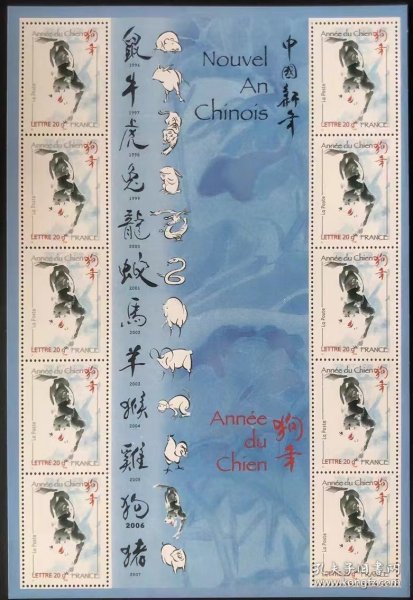 Année du Chien
狗年
La Poste
LETTRE 20 g FRANCE
Année du Chien
狗年
La Poste
LETTRE 20 g FRANCE
Année du Chien
狗年
La Poste
LETTRE 20 g FRANCE
Année du Chien
狗年
La Poste
LETTRE 20 g FRANCE
Année du Chien
狗年
La Poste
LETTRE 20 g FRANCE
鼠
1996
牛
1997
虎
1998
兔
1999
龍
2000
蛇
2001
馬
2002
羊
2003
猴
2004
雞
2005
狗
2006
猪
2007
Nouvel
An
Chinois
中國新年
Année
du
Chien
狗年
Année du Chien
狗年
La Poste
LETTRE 20 g FRANCE
Année du Chien
狗年
La Poste
LETTRE 20 g FRANCE
Année du Chien
狗年
La Poste
LETTRE 20 g FRANCE
Année du Chien
狗年
La Poste
LETTRE 20 g FRANCE
Année du Chien
狗年
La Poste
LETTRE 20 g FRANCE
孔夫子旧书网